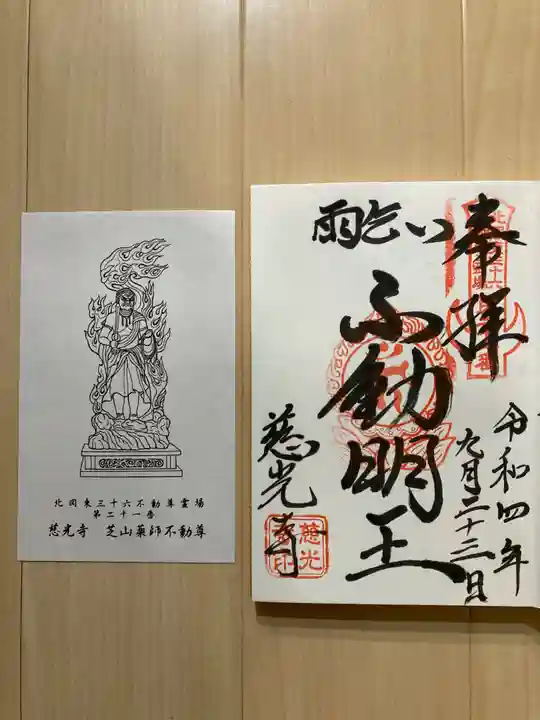 北関東三十六不動尊霊場
第二十一番
慈光寺　芝山薬師不動尊
奉拝
令和四年
九月二十三日
雨乞い
不動明王
慈光寺
慈光